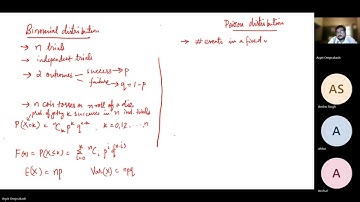 Binomial distribution
→ n trials
→ independent trials
→ 2 outcomes → success → p
failure → q = 1 - p
→ n coin tosses or n roll of a die
prob. of getting k successes in n ind. trials
P(X=k) = ⁿCₖ pᵏ qⁿ⁻ᵏ , k = 0,1,2 ... n
F(x) = P(X≤x) = Σ ⁿCᵢ pⁱ q⁽ⁿ⁻ⁱ⁾
i=0
E(X) = np Var(X) = npq
Poisson distribution
→ # events in a fixed
Arpit Omprakash
AS
Anshu Singh
A
A
Anshul
Arpit Omprakash